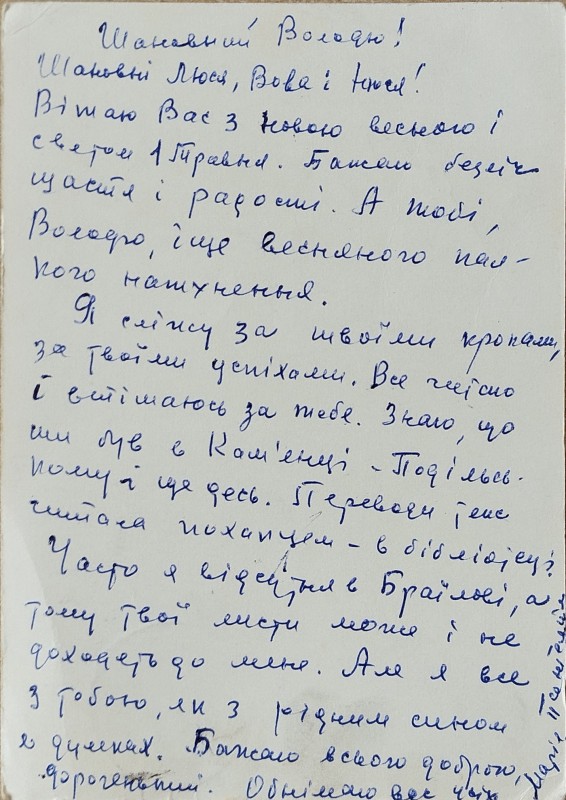 Шановний Володю!
Шановні Люся, Вова і Нюся!
Вітаю Вас з новою весною і
святом 1 Травня. Бажаю безліч
щастя і радості. А тобі,
Володю, іще весняного пал-
кого натхнення.
Я сліжу за твоїми кроками,
за твоїми успіхами. Все читаю
і втімаюсь за тебе. Знаю, що
ти був в Кам'янці-Подільсь-
кому і ще десь. Переводи теж
читала похапцем – в бібліотеці.
Часто я відсутня в Браїлові, а
тому твої листи може і не
доходять до мене. Але я все
з тобою, як з рідним сином
в думках. Бажаю всього доброго,
дорогенький. Обнімаю вас усіх
Марія